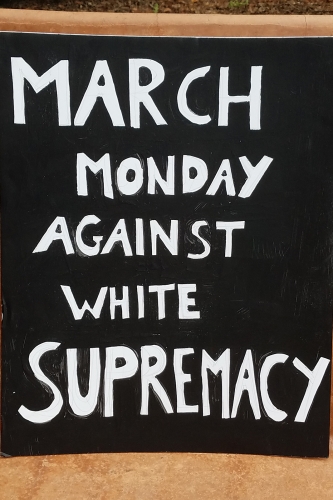 MARCH
MONDAY
AGAINST
WHITE
SUPREMACY